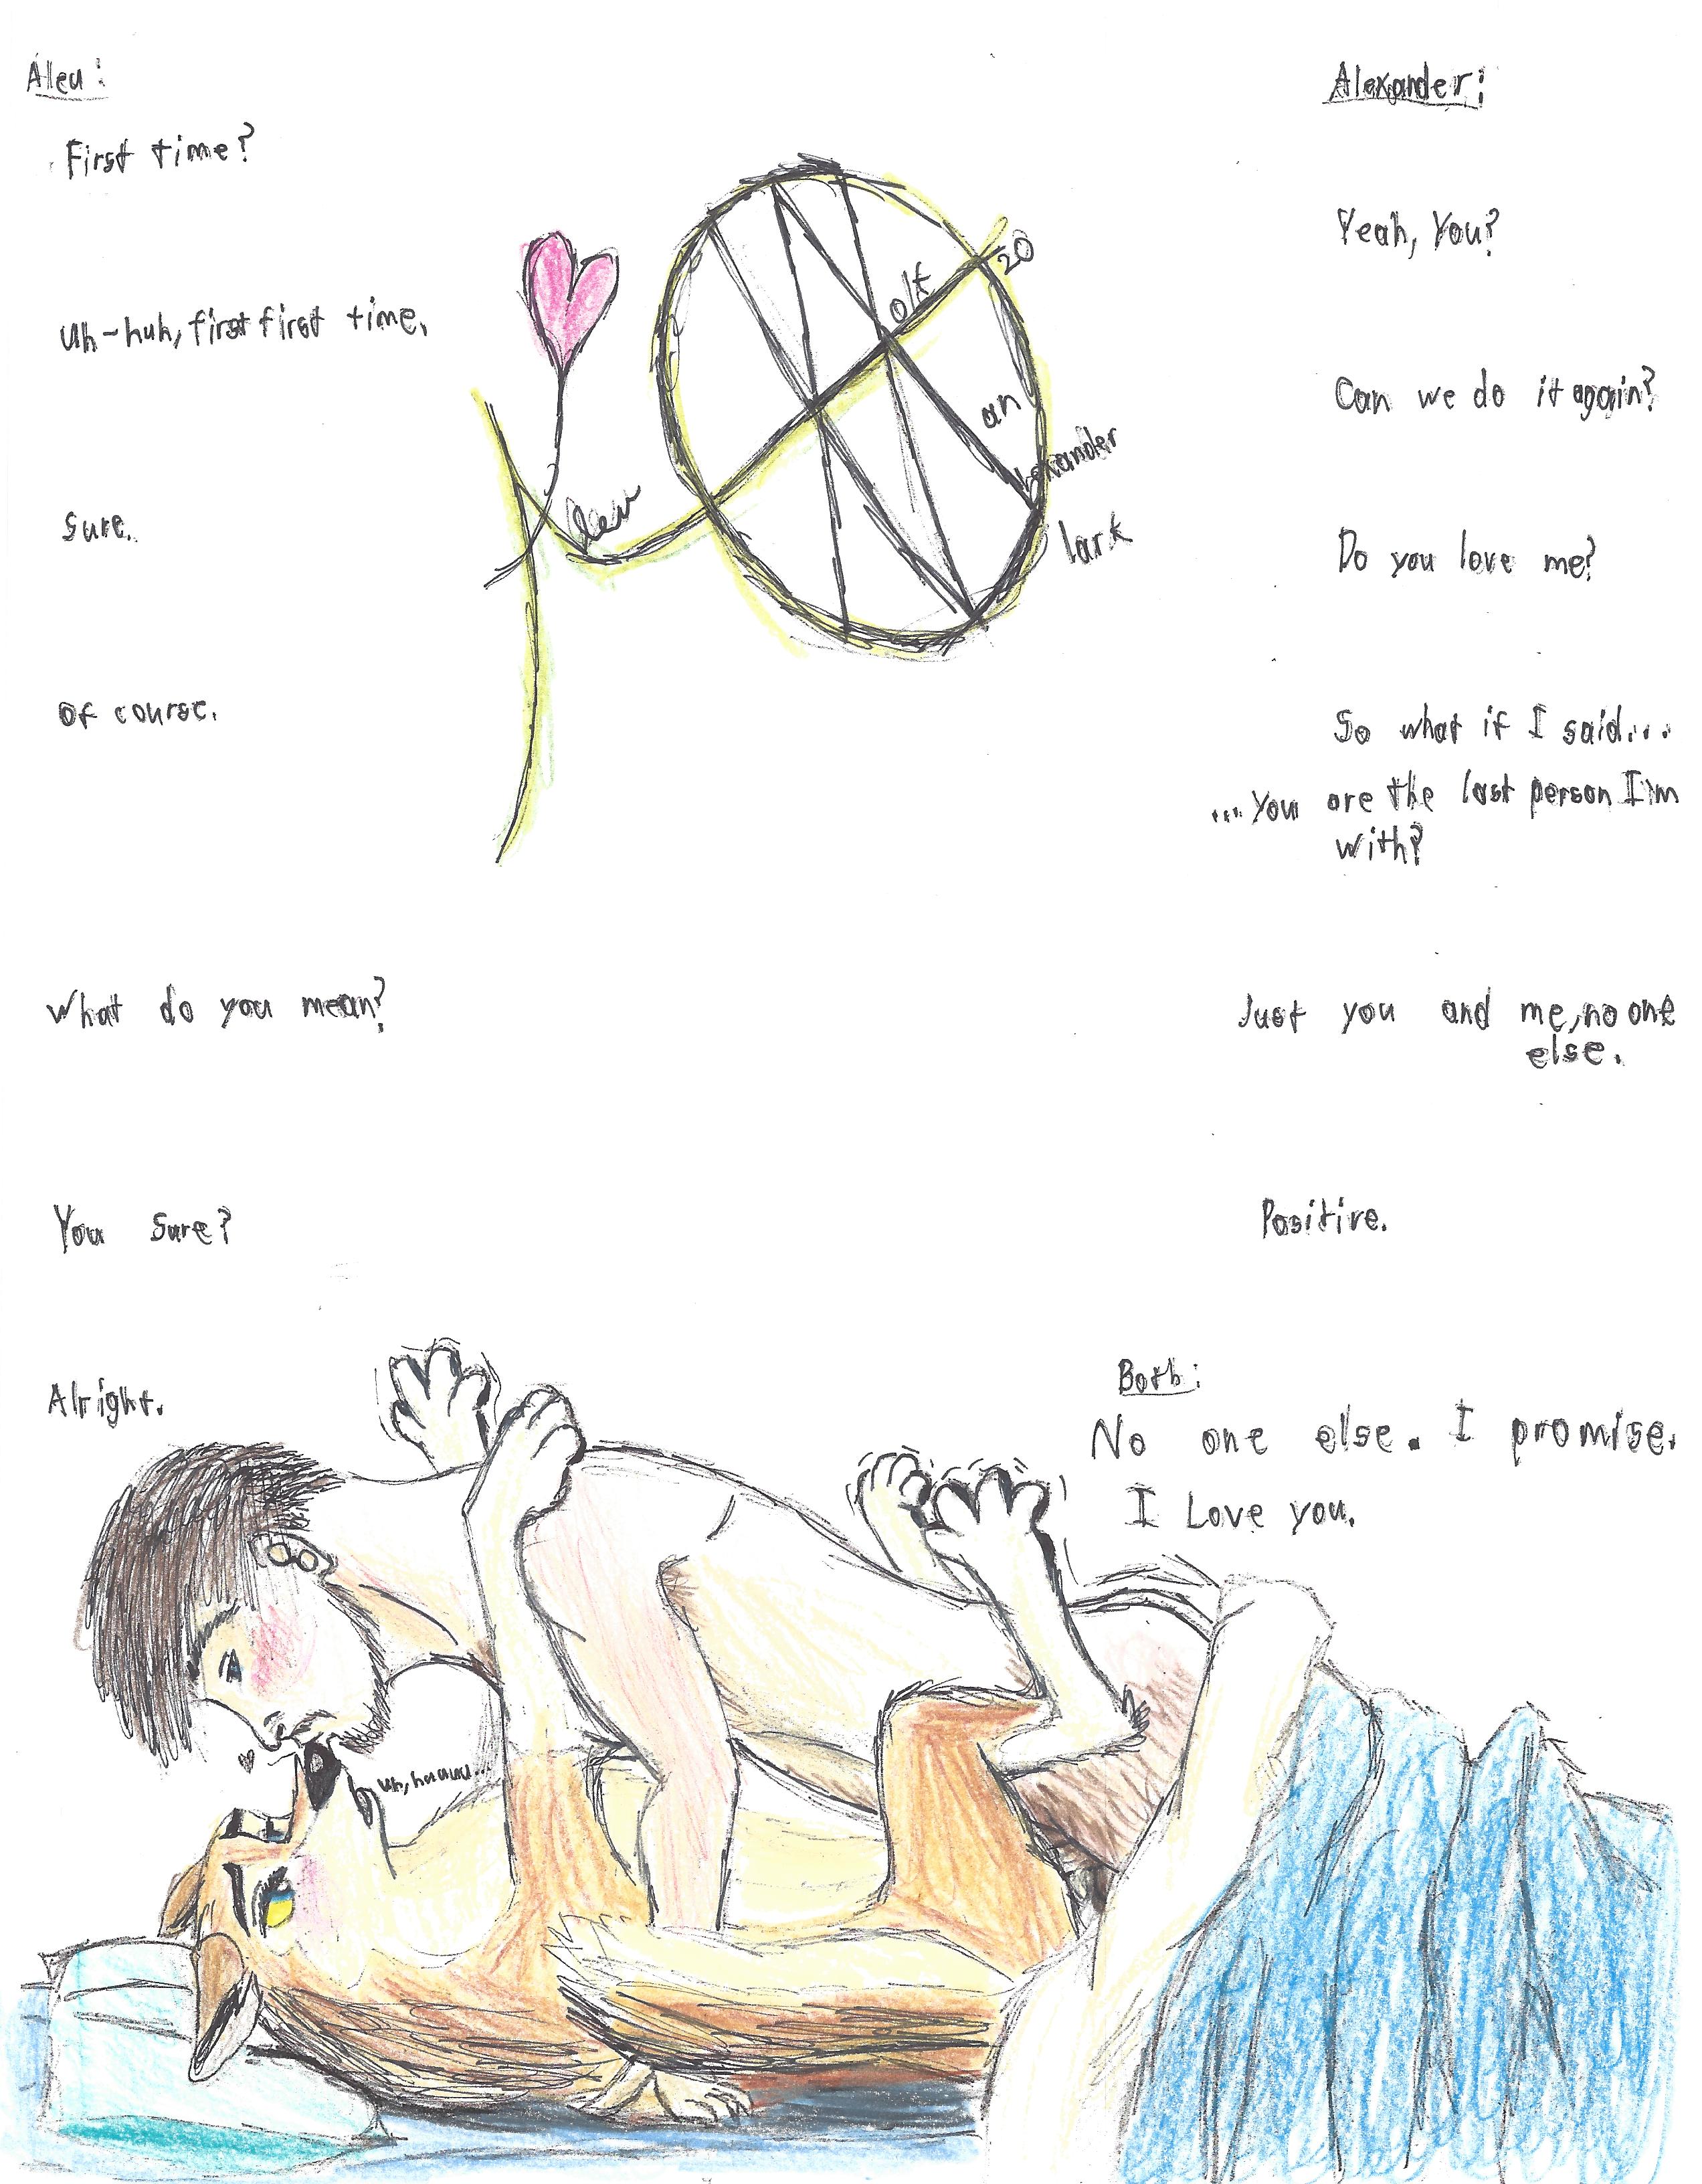 Aleu:
Alexander:
First time?
Yeah, You?
Uh-huh, first first time.
Can we do it again?
Sure.
Do you love me?
Of course.
So what if I said...
...You are the last person I'm
with?
What do you mean?
Just you and me, no one
else.
You sure?
Positive.
Alright.
Both:
No one else. I promise.
I Love you.
20
olt
an
lexander
lark
leu